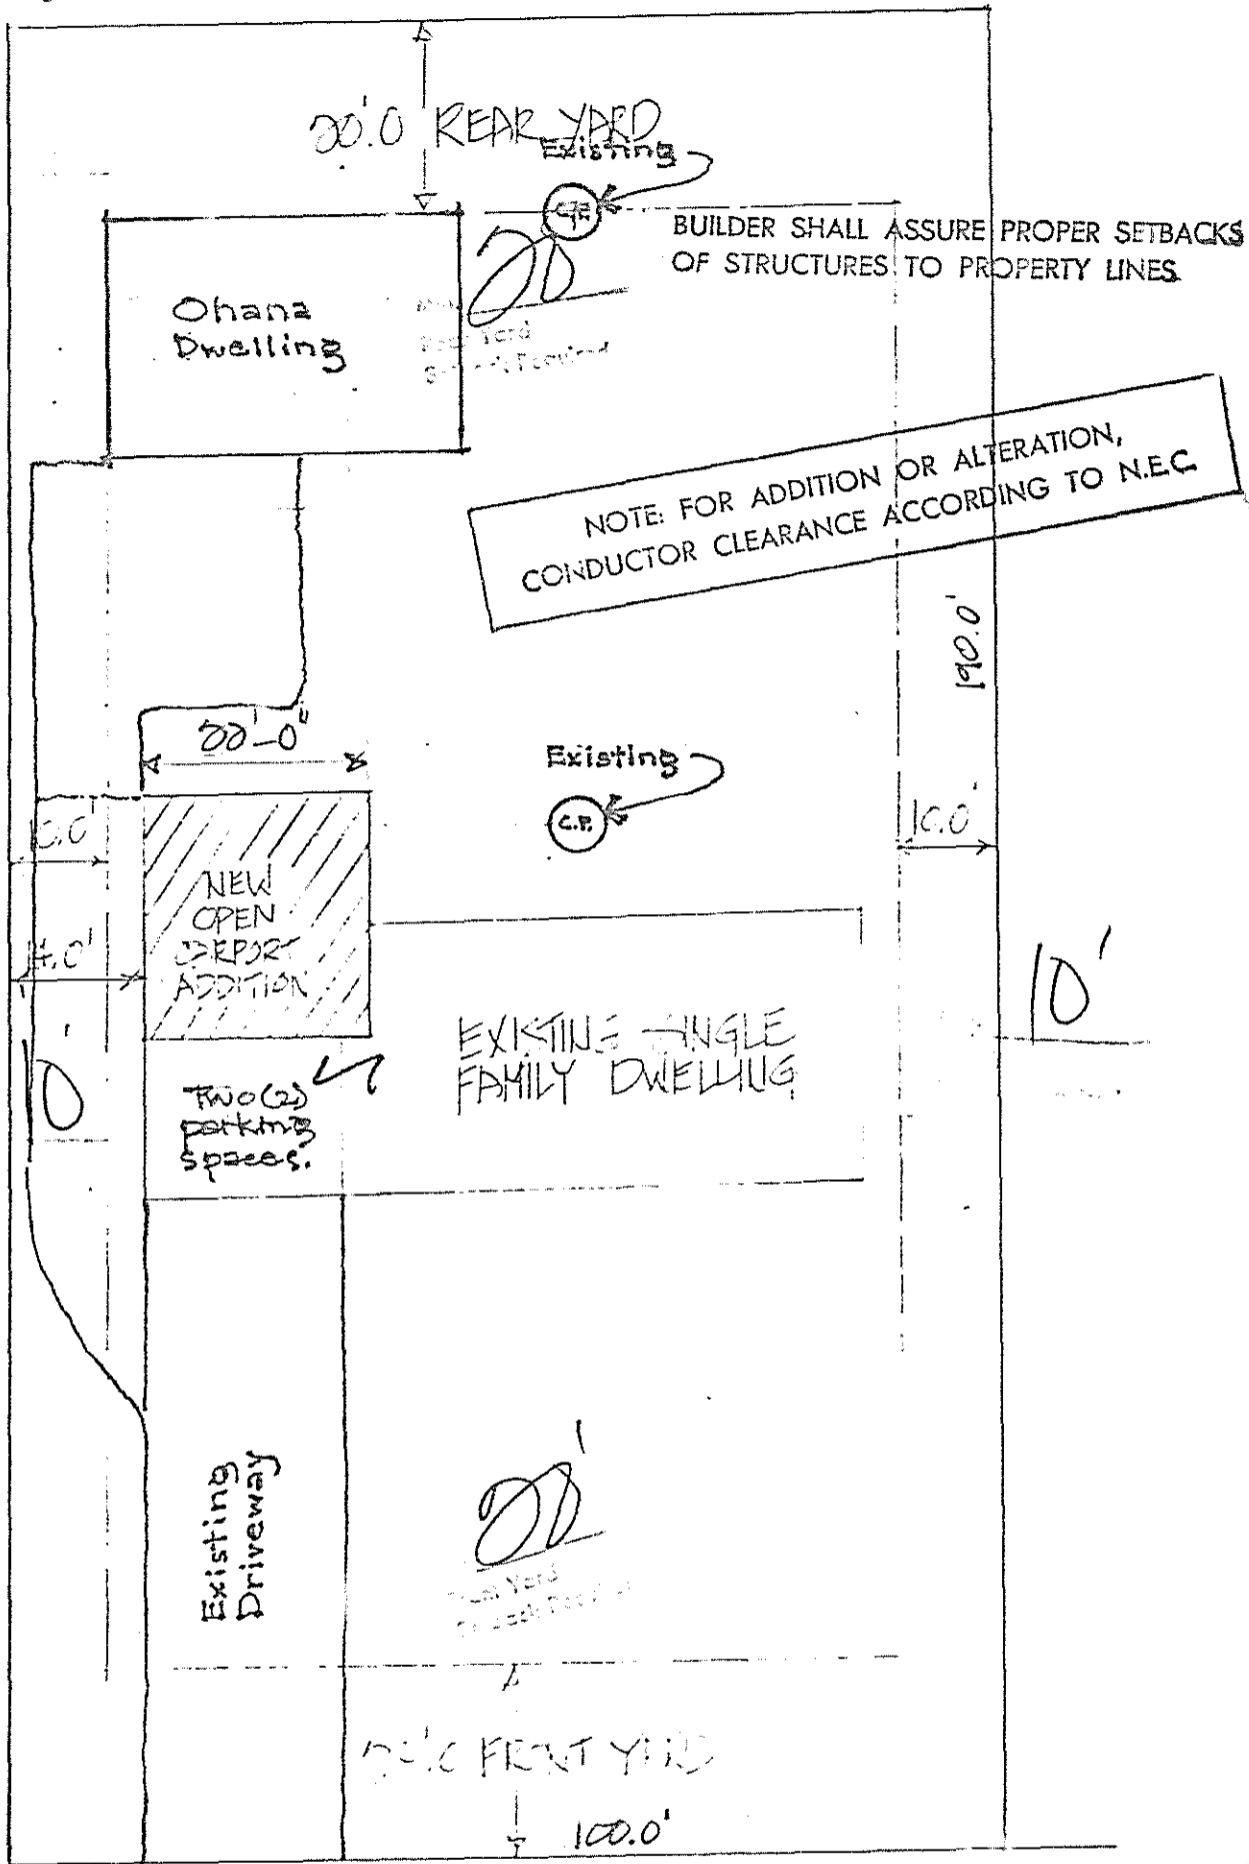 20'.0 REAR YARD
Existing
20
Rear Yard
BUILDER SHALL ASSURE PROPER SETBACKS
OF STRUCTURES TO PROPERTY LINES
Ohana
Dwelling
NOTE: FOR ADDITION OR ALTERATION,
CONDUCTOR CLEARANCE ACCORDING TO N.E.C.
190.0'
22'-0"
Existing
C.P.
10.0'
10.0'
NEW
OPEN
CARPORT
ADDITION
14.0'
10'
EXISTING SINGLE
FAMILY DWELLING
10'
Two (2)
parking
spaces.
Existing
Driveway
20'
FRONT YARD
100.0'